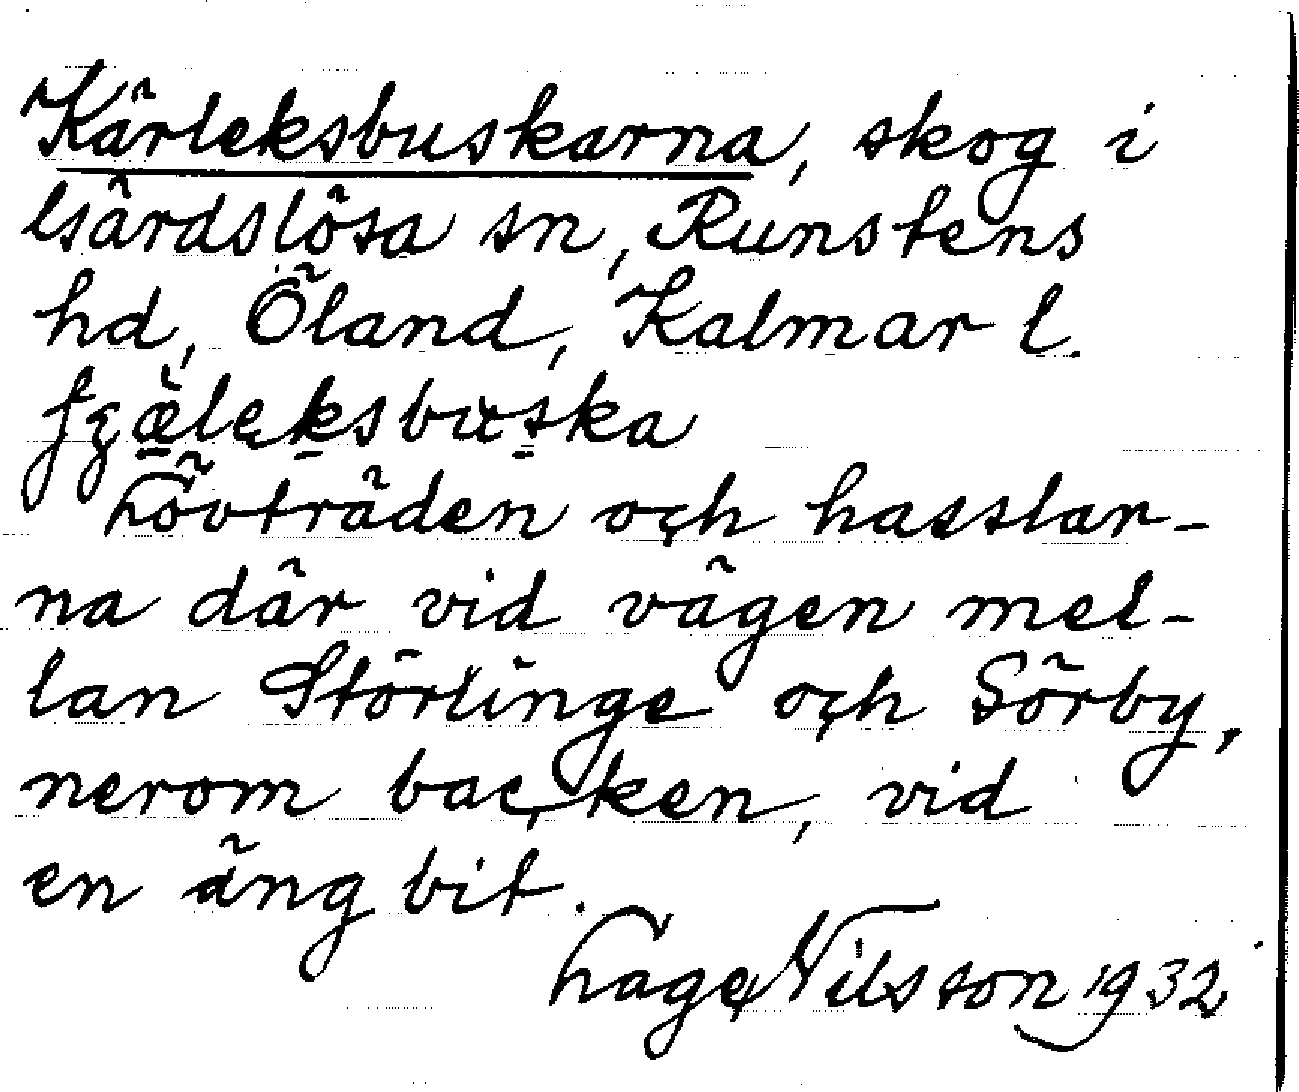 Kärleksbuskarna, skog i
Gärdslösa sn, Runstens
hd, Öland, Kalmar l.
Lövträden och hasslar-
na där vid vägen mel-
lan Störlinge och Sörby,
nerom backen, vid
en äng bit.
Lage Nilsson 1932